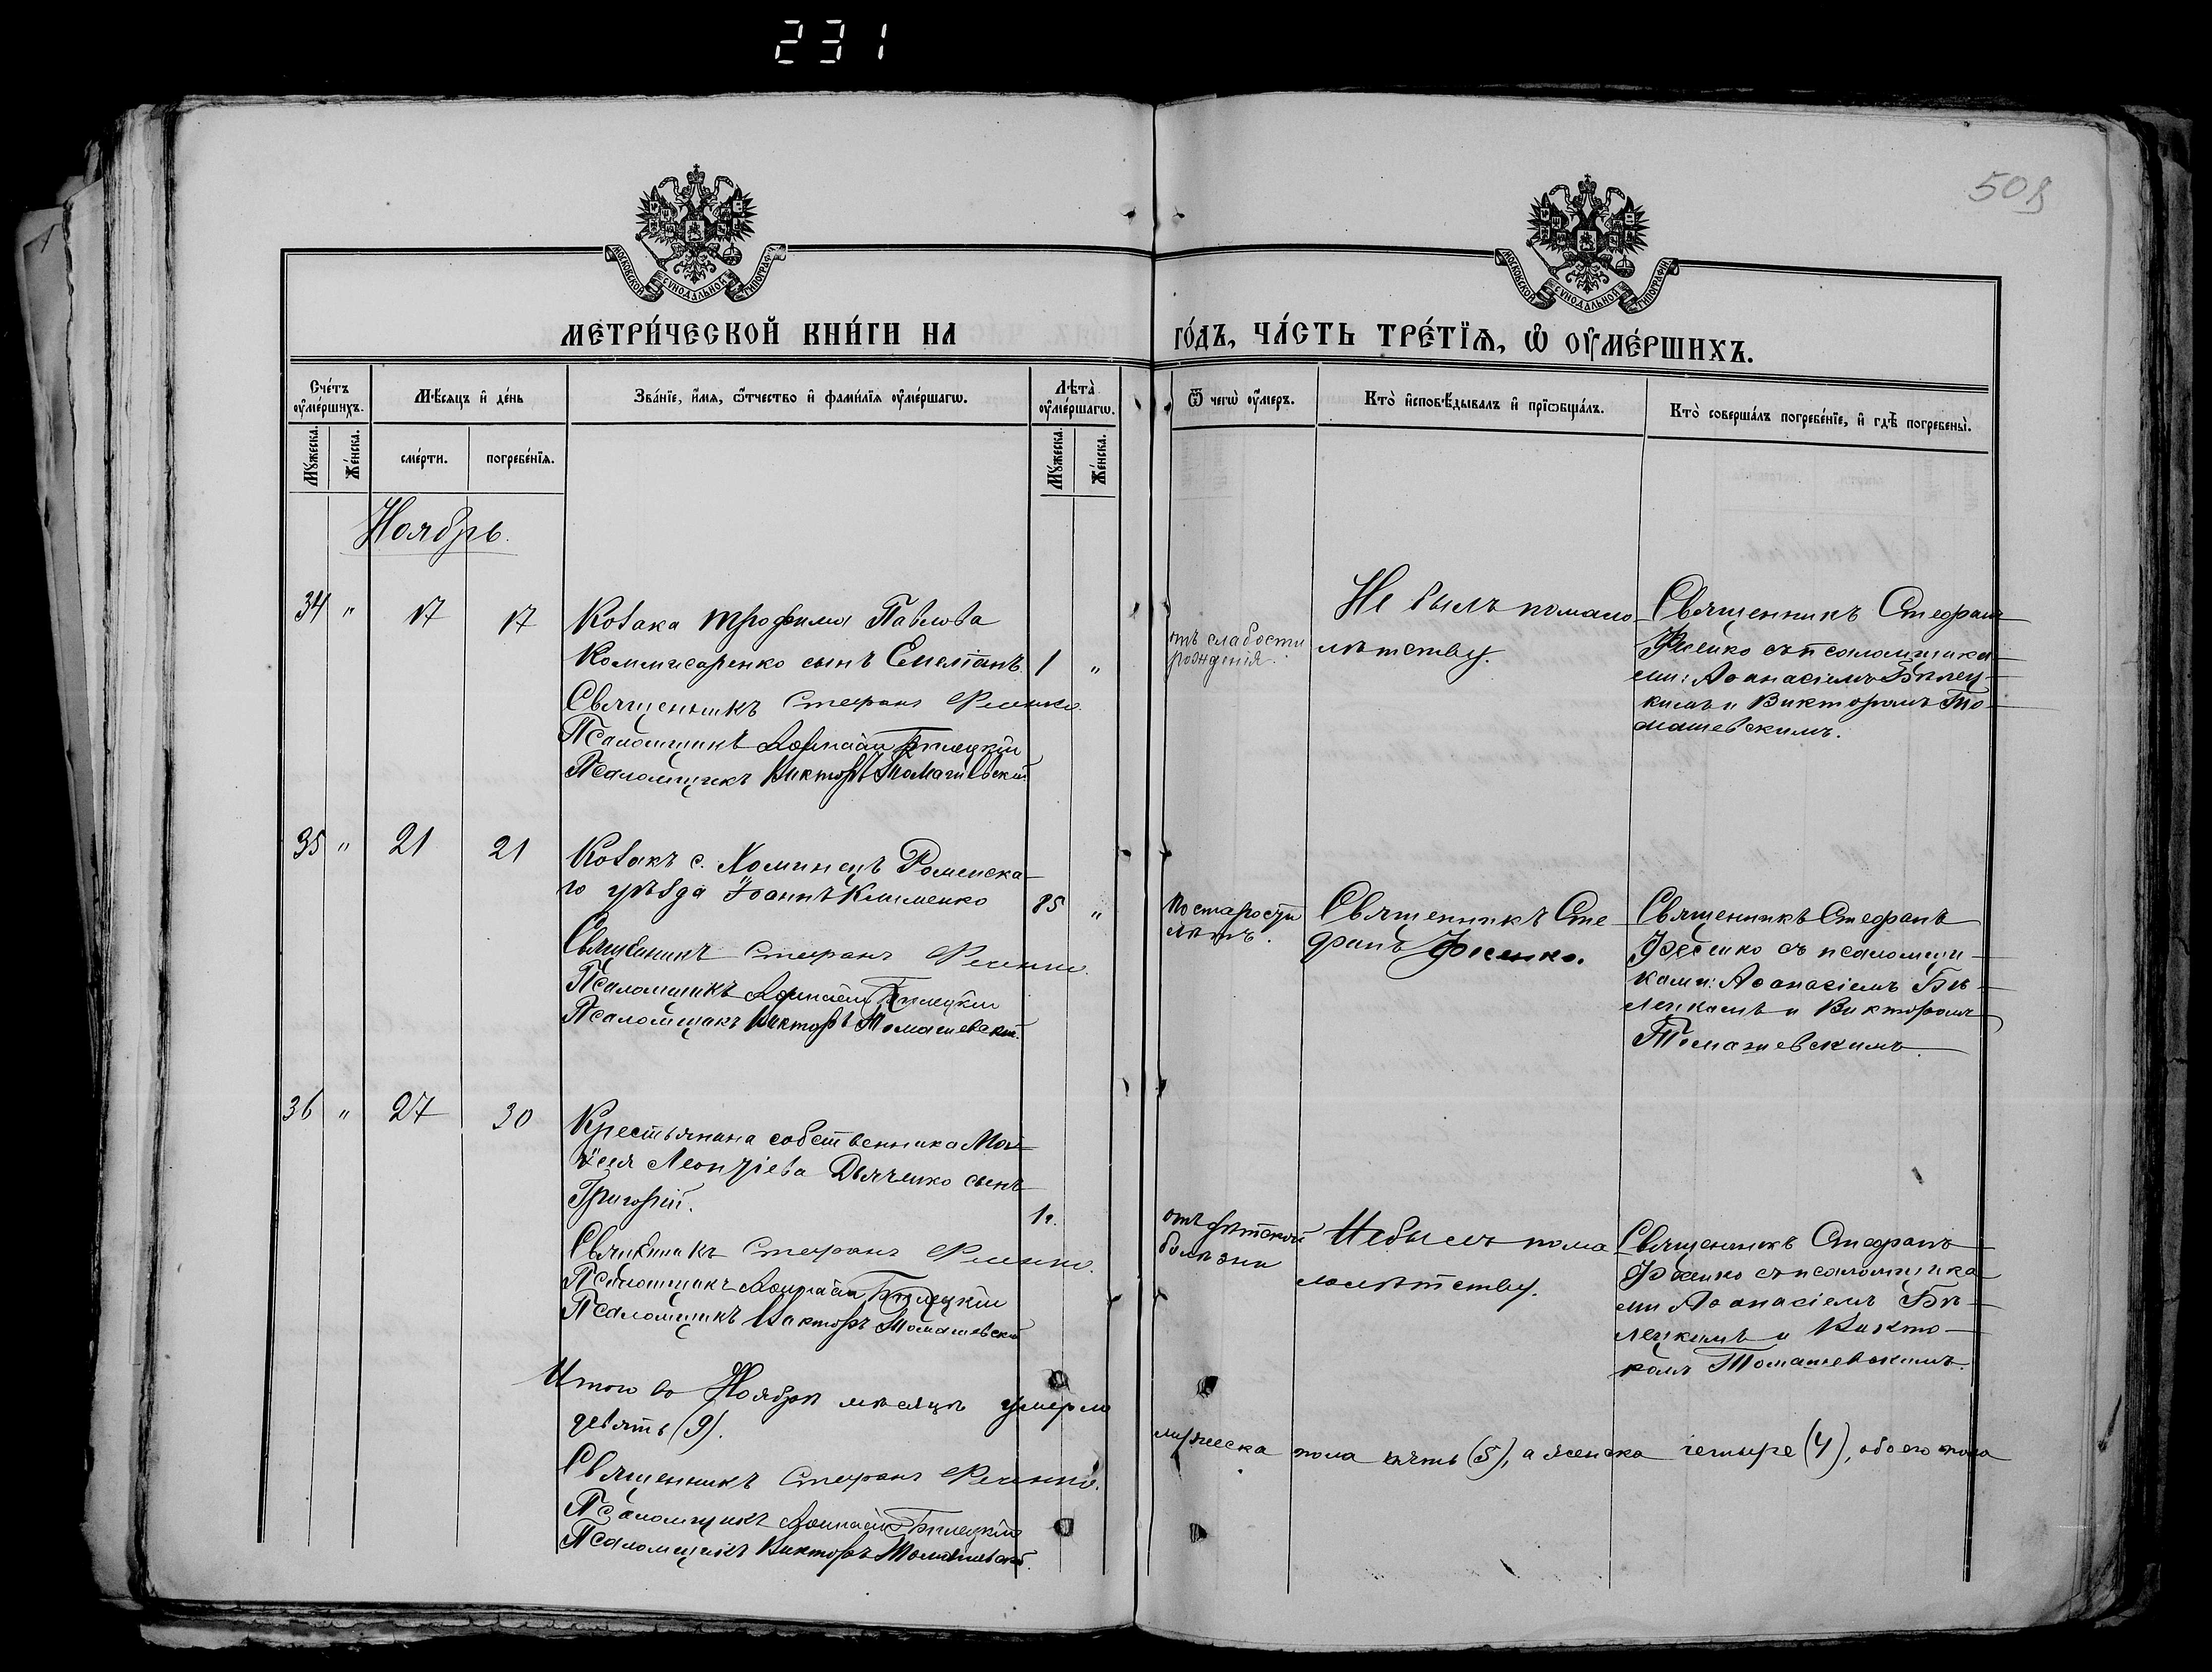 231
508
МОСКОВСКОЙ СѴНОДАЛЬНОЙ ТИПОГРАФІИ
МОСКОВСКОЙ СѴНОДАЛЬНОЙ ТИПОГРАФІИ
МЕТРИ́ЧЕСКОЙ КНИ́ГИ НА
ГО́ДЪ, ЧА́СТЬ ТРЕ́ТЇѦ, Ѡ҆ ОУ҆МЕ́РШИХЪ.
Сче́тъ оу҆ме́ршихъ.
Мѣ́сяцъ и҆ де́нь
Зва́нїе, и҆́мя, ѻ҆́тчество и҆ фами́лїя оу҆ме́ршагѡ.
Лѣ́та оу҆ме́ршагѡ.
Ѿ чегѡ̀ оу҆́меръ.
Кто̀ и҆сповѣ́дывалъ и҆ прїѡбща́лъ.
Кто̀ соверша́лъ погребе́нїе, и҆ гдѣ̀ погребены̀.
Мꙋ́жеска.
Же́нска.
сме́рти.
погребе́нїя.
Мꙋ́жеска.
Же́нска.
Ноябрь.
34 " 17 17
Козака Трофима Павлова
Коммисаренко сынъ Емеліанъ 1 "
Священникъ Стефанъ Фесенко
Псаломщикъ Аѳанасій Бѣлецкій
Псаломщикъ Викторъ Томашевскій
отъ слабости
рожденія.
Не былъ помало
лѣтству.
Священникъ Стефанъ
Фесенко съ псаломщика
ми: Аѳанасіемъ Бѣлец
кимъ и Викторомъ То
машевскимъ.
35 " 21 21
Козакъ с. Хоминецъ Роменска
го уѣзда Іоаннъ Клименко 85 "
Священникъ Стефанъ Фесенко
Псаломщикъ Аѳанасій Бѣлецкій
Псаломщикъ Викторъ Томашевскій.
по старости
лѣтъ.
Священникъ Сте
фанъ Фесенко.
Священникъ Стефанъ
Фесенко съ псаломщи
ками: Аѳанасіемъ Бѣ
лецкимъ и Викторомъ
Томашевскимъ.
36 " 27 30
Крестьянина собственника Мои
сея Леонтіева Дьяченко сынъ
Григорій. 1г.
Священникъ Стефанъ Фесенко.
Псаломщикъ Аѳанасій Бѣлецкій
Псаломщикъ Викторъ Томашевскій
отъ дѣтской
болѣзни
Не былъ пома
лолѣтству.
Священникъ Стефанъ
Фесенко съ псаломщика
ми Аѳанасіемъ Бѣ
лецкимъ и Викто
ромъ Томашевскимъ.
Итого въ Ноябрѣ мѣсяцѣ умерло
мужеска пола пять (5), а женска четыре (4), обоего пола
девять (9).
Священникъ Стефанъ Фесенко.
Псаломщикъ Аѳанасій Бѣлецкій
Псаломщикъ Викторъ Томашевскій.